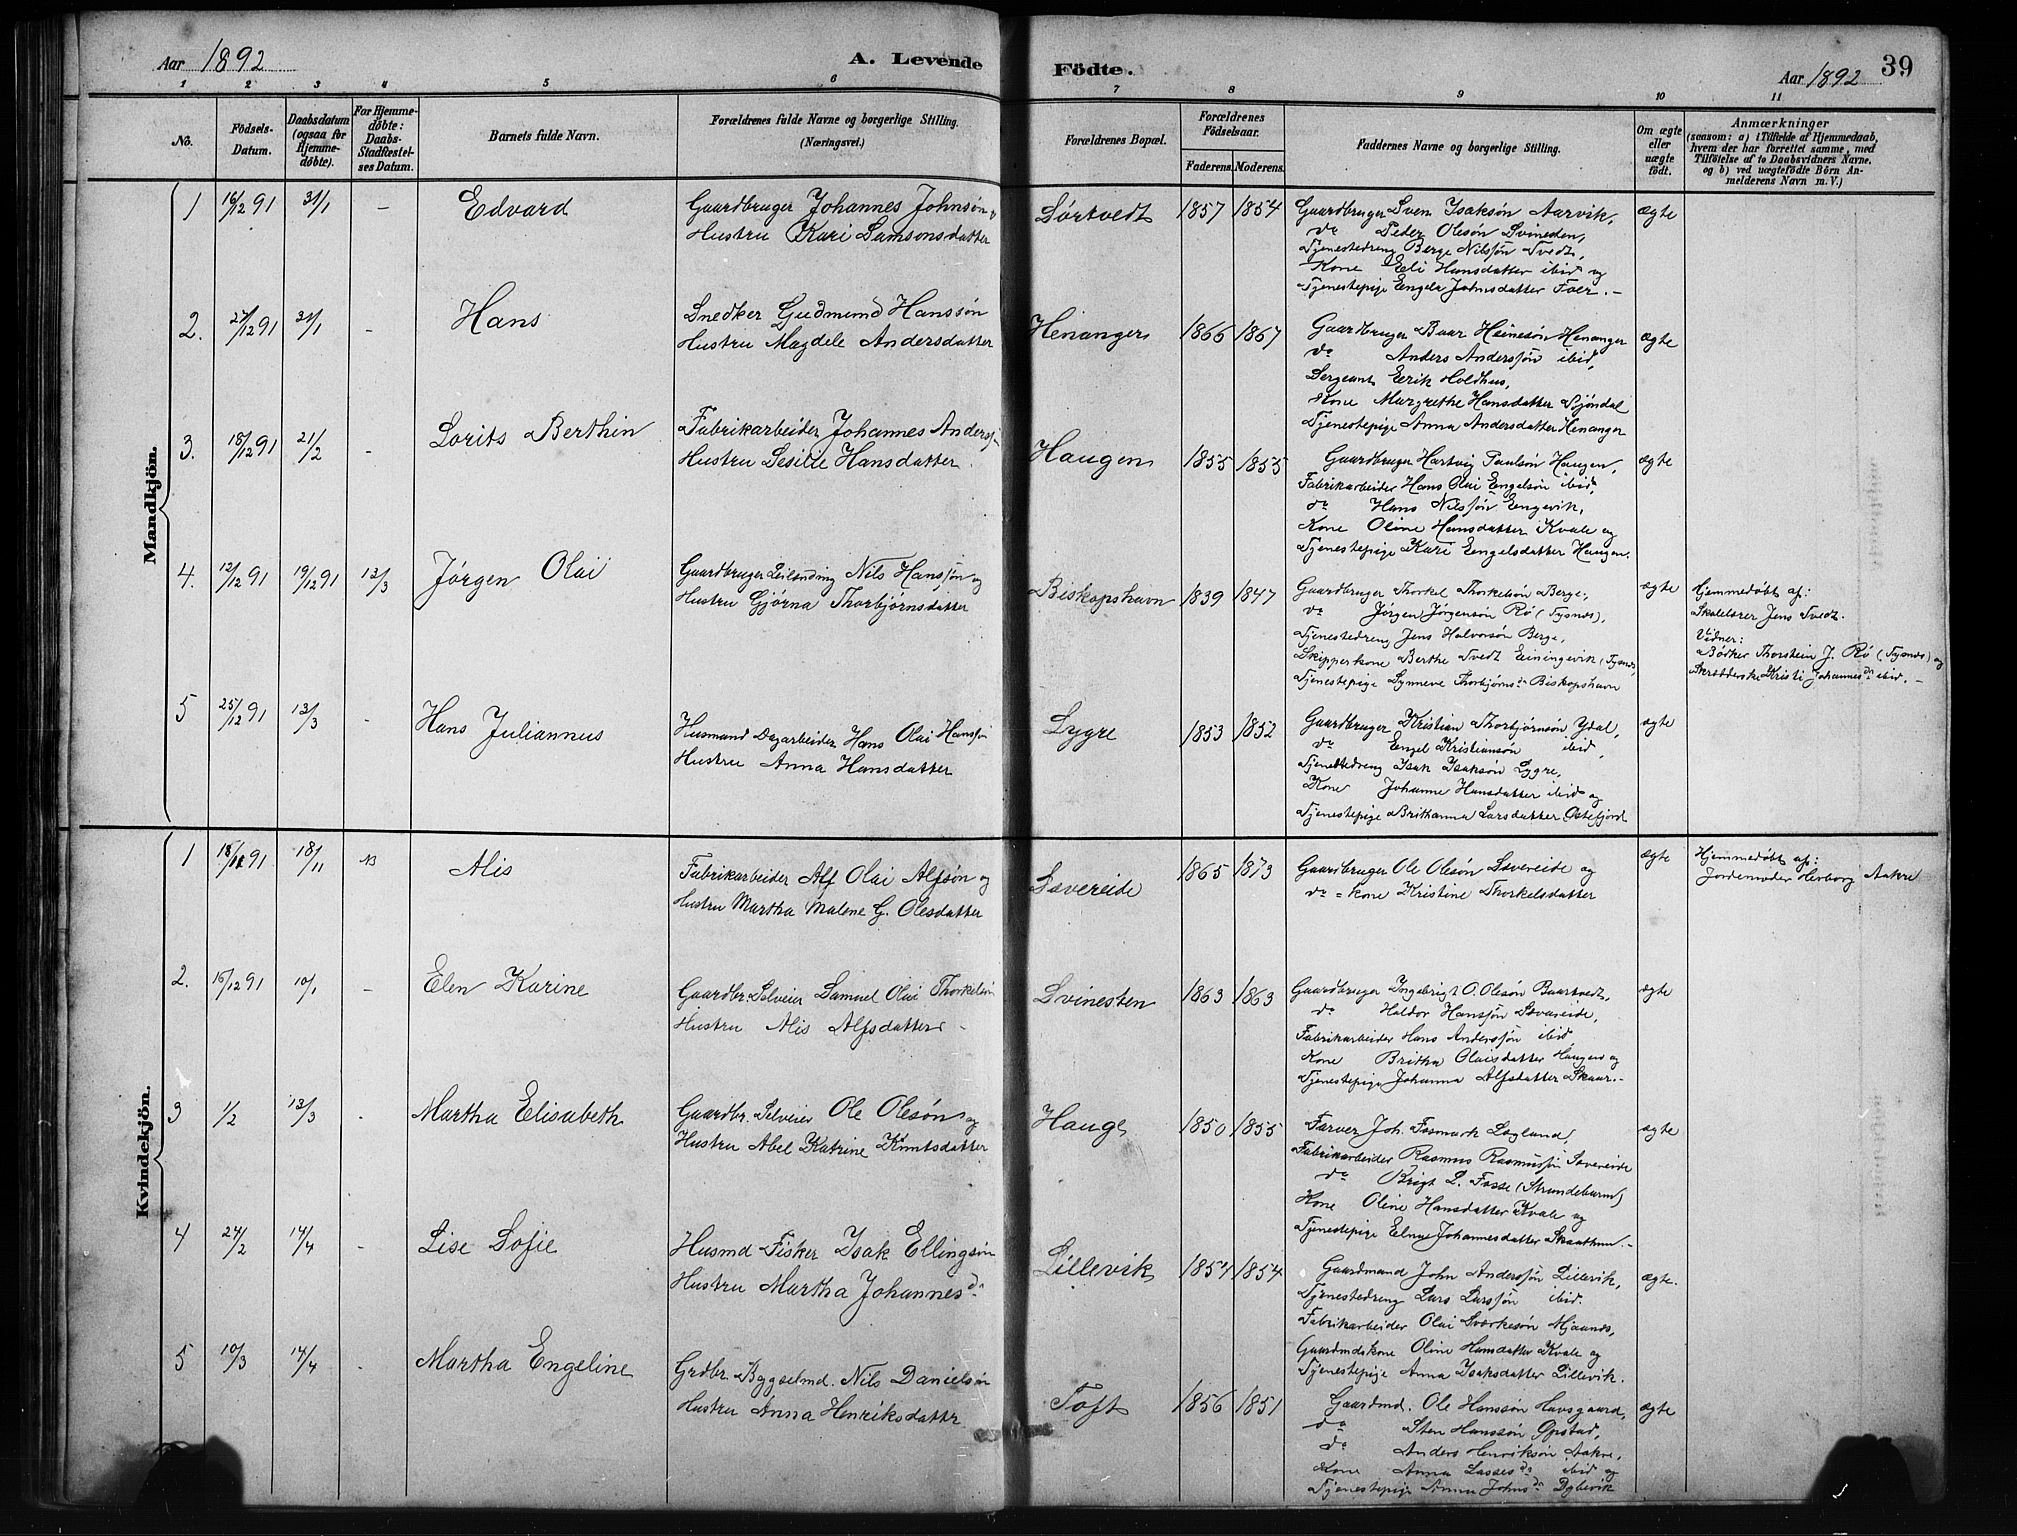 Aar 1892
A. Levende Födte.
Aar 1892
39
1 2 3 4 5 6 7 8 9 10 11
No.
Födsels-Datum.
Daabsdatum (ogsaa for Hjemme-döbte).
For Hjemme-döbte: Daabs-Stadfæstel-ses Datum.
Barnets fulde Navn.
Forældrenes fulde Navne og borgerlige Stilling. (Næringsvei.)
Forældrenes Bopæl.
Forældrenes Födselsaar.
Faderens. Moderens.
Faddernes Navne og borgerlige Stilling.
Om ægte eller uægte födt.
Anmærkninger
(saasom: a) i Tilfælde af Hjemmedaab,
hvem der har forrettet samme, med
Tilföielse af to Daabsvidners Navne.
og b) ved uægtefödte Börn An-
melderens Navn m. V.)
Mandkjön.
1 16/12 91 31/1 - Edvard
Gaardbruger Johannes Johnsön
Hustru Kari Samsonsdatter
Sørtvedt 1857 1854
Gaardbruger Sven Isaksön Aarvik,
do Peder Olesön Svinesten,
Tjenestedreng Berge Nilssön Tvedt,
Kone Eli Hansdatter ibid og
Tjenestepige Engela Johnsdatter Foer. -
ægte
2. 27/12 91 31/1 - Hans
Snedker Gudmund Hanssön
Hustru Magdele Andersdatter
Henanger 1866 1867
Gaardbruger Baar Heinesön Henanger
do Anders Anderssön ibid,
Sergeant Eerik Holdhus,
Kone Margrethe Hansdatter Sjöndal
Tjenestepige Anna Andersdatter Henanger
ægte
3. 18/12 91 21/2 - Lorits Berthin
Fabrikarbeider Johannes Anderss
Hustru Sesilie Hansdatter
Haugen 1855 1855
Gaardbruger Hartvig Paulsön Haugen,
Fabrikarbeider Hans Olai Engelsön ibid,
do Hans Nilssön Engevik,
Kone Oline Hansdatter Kvale og
Tjenestepige Kari Engelsdatter Haugen.
ægte
4. 12/12 91 19/12 91 13/3 Jørgen Olai
Gaardbruger Leilending Nils Hanssön og
Hustru Gjørna Thorbjørnsdatter
Biskopshavn 1839 1847
Gaardbruger Thorkel Thorkelsön Berge,
do Jørgen Jørgensön Rö (Tysnæs),
Tjenestedreng Jens Halvorsön Berge,
Skipperkone Berthe Tvedt Einingevik (Tysnæs
Tjenestepige Synneve Thorbjørnsdr Biskopshavn
ægte
Hjemmedøbt af:
Skolelærer Jens Tvedt.
Vidner:
Bödker Thorstein J. Rö (Tysnæs) og
Skrædderske Kristi Johannesdr ibid. -
5 25/12 91 13/3 - Hans Juliannus
Husmand Dagarbeider Hans Olai Hanss
Hustru Anna Hansdatter
Lygre 1853 1852
Gaardbruger Kristian Thorbjørnsön Ydal,
do Engel Kristiansön ibid,
Tjenestedreng Isak Isaksön Lygre,
Kone Johanne Hansdatter ibid og
Tjenestepige Brithanna Larsdatter Ostefjord
ægte
Kvindekjön.
1 18/11 91 18/11 NB Alis
Fabrikarbeider Alf Olai Alfsön og
Hustru Martha Malene G. Olesdatter
Sævereide 1865 1873
Gaardbruger Ole Olesön Sævereide og
do - kone Kristine Thorkelsdatter
ægte
Hjemmedøbt af:
Jordemoder Herborg Aakre
2. 16/12 91 10/1 - Elen Karine
Gaardbr. Selveier Samuel Olai Thorkels
Hustru Alis Alfsdatter -
Svinesten 1863 1863
Gaardbruger Ingebrigt O. Olesön Baartvedt,
do Haldor Hanssön Sævareide,
Fabrikarbeider Hans Anderssön ibid,
Kone Britha Olaisdatter Haugen og
Tjenestepige Johanna Alfsdatter Skaar.-
ægte
3 1/2 13/3 - Martha Elisabeth
Gaardbr. Selveier Ole Olesön og
Hustru Abel Katrine Knutsdatter
Hauge 1850 1855
Farver Joh. Fosmark Lagland,
Fabrikarbeider Rasmus Rasmussön Sævereide
do Brigt L. Fosse (Strandebarm)
Kone Oline Hansdatter Kvale og
Tjenestepige Johannesdatter .-
ægte
4 24/2 14/4 - Lise Sofie
Husmd Fisker Isak Ellingsön
Hustru Martha Johannesdr
Lillevik 1854 1854
Gaardmand John Anderssön Lillevik,
Tjenestedreng Lars Larssön ibid.
Fabrikarbeider Olai Sværkesön Mjaanæs,
Gaardmdskone Oline Hansdatter Kvale og
Tjenestepige Anna Isaksdatter Lillevik.
ægte.
5 10/3 14/4 - Martha Engeline
Grdbr Bygselmd. Nils Danielsön
Hustru Anna Henriksdattr
Toft 1856 1851
Gaardmd. Ole Hanssön Havsgaard,
do Sten Hanssön Opstad,
do Anders Henriksön Aakre,
Kone Anna Lassesdr ibid og
Tjenestepige Anna Johnsdr Dybevik
ægte